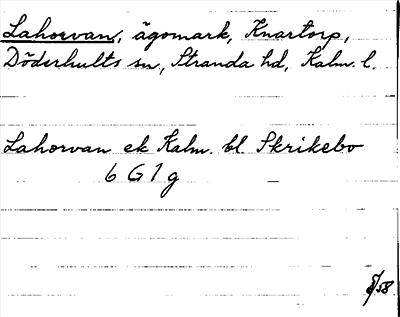 Lahorvan, ägomark, Knartorp,
Döderhults sn, Stranda hd, Kalm. l.
Lahorvan ek Kalm. bl. Skrikebo
6 G 1 g